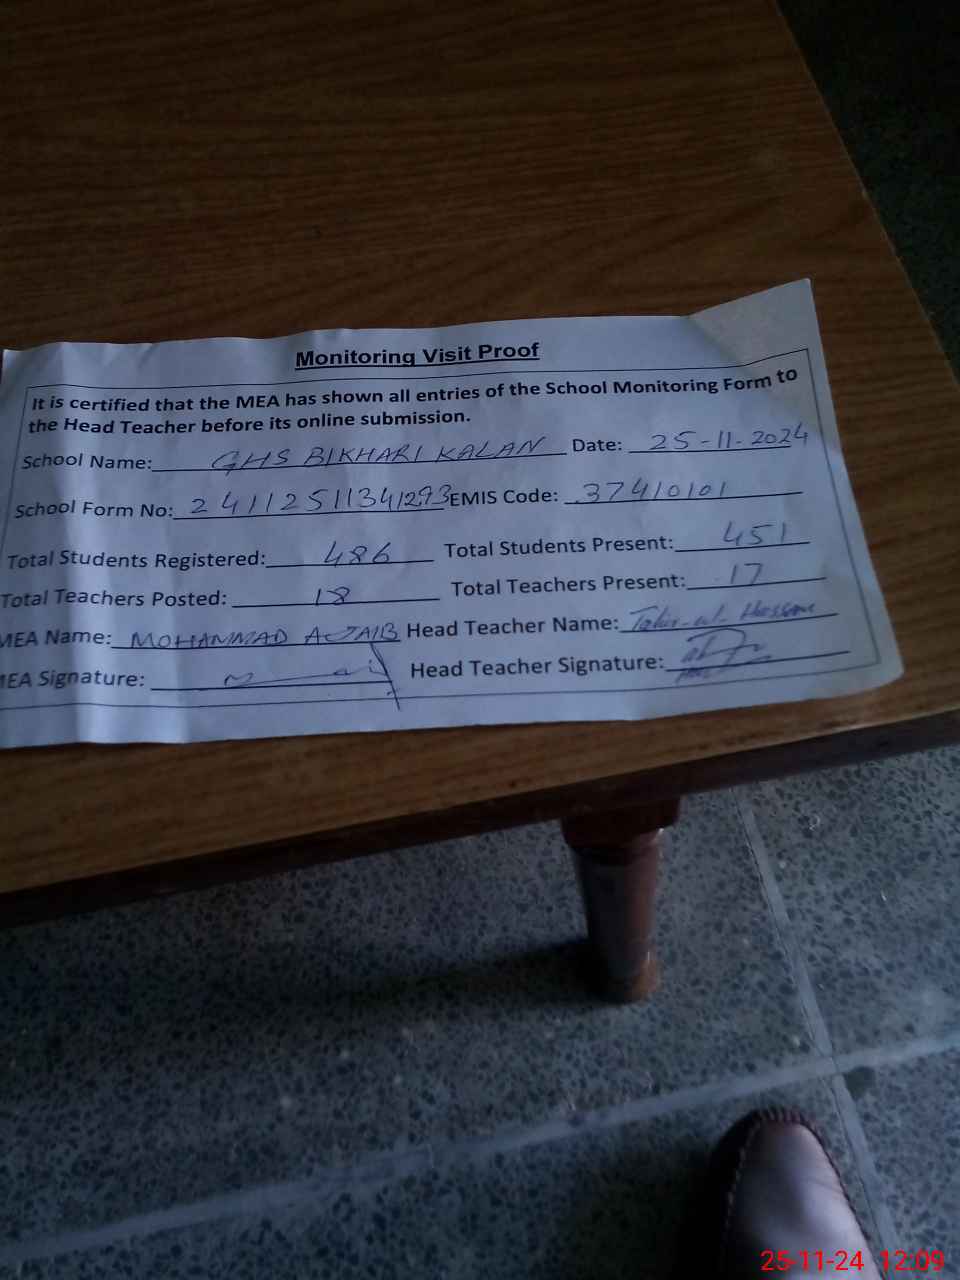 Monitoring Visit Proof
It is certified that the MEA has shown all entries of the School Monitoring Form to
the Head Teacher before its online submission.
School Name: GHS BIKHARI KALAN Date: 25-11-2024
School Form No: 24112511341293 EMIS Code: 37410101
Total Students Registered: 486 Total Students Present: 451
Total Teachers Posted: 18 Total Teachers Present: 17
MEA Name: MOHAMMAD AJAIB Head Teacher Name: Tahir-ul-Hassan
MEA Signature: Head Teacher Signature:
25-11-24 12:09